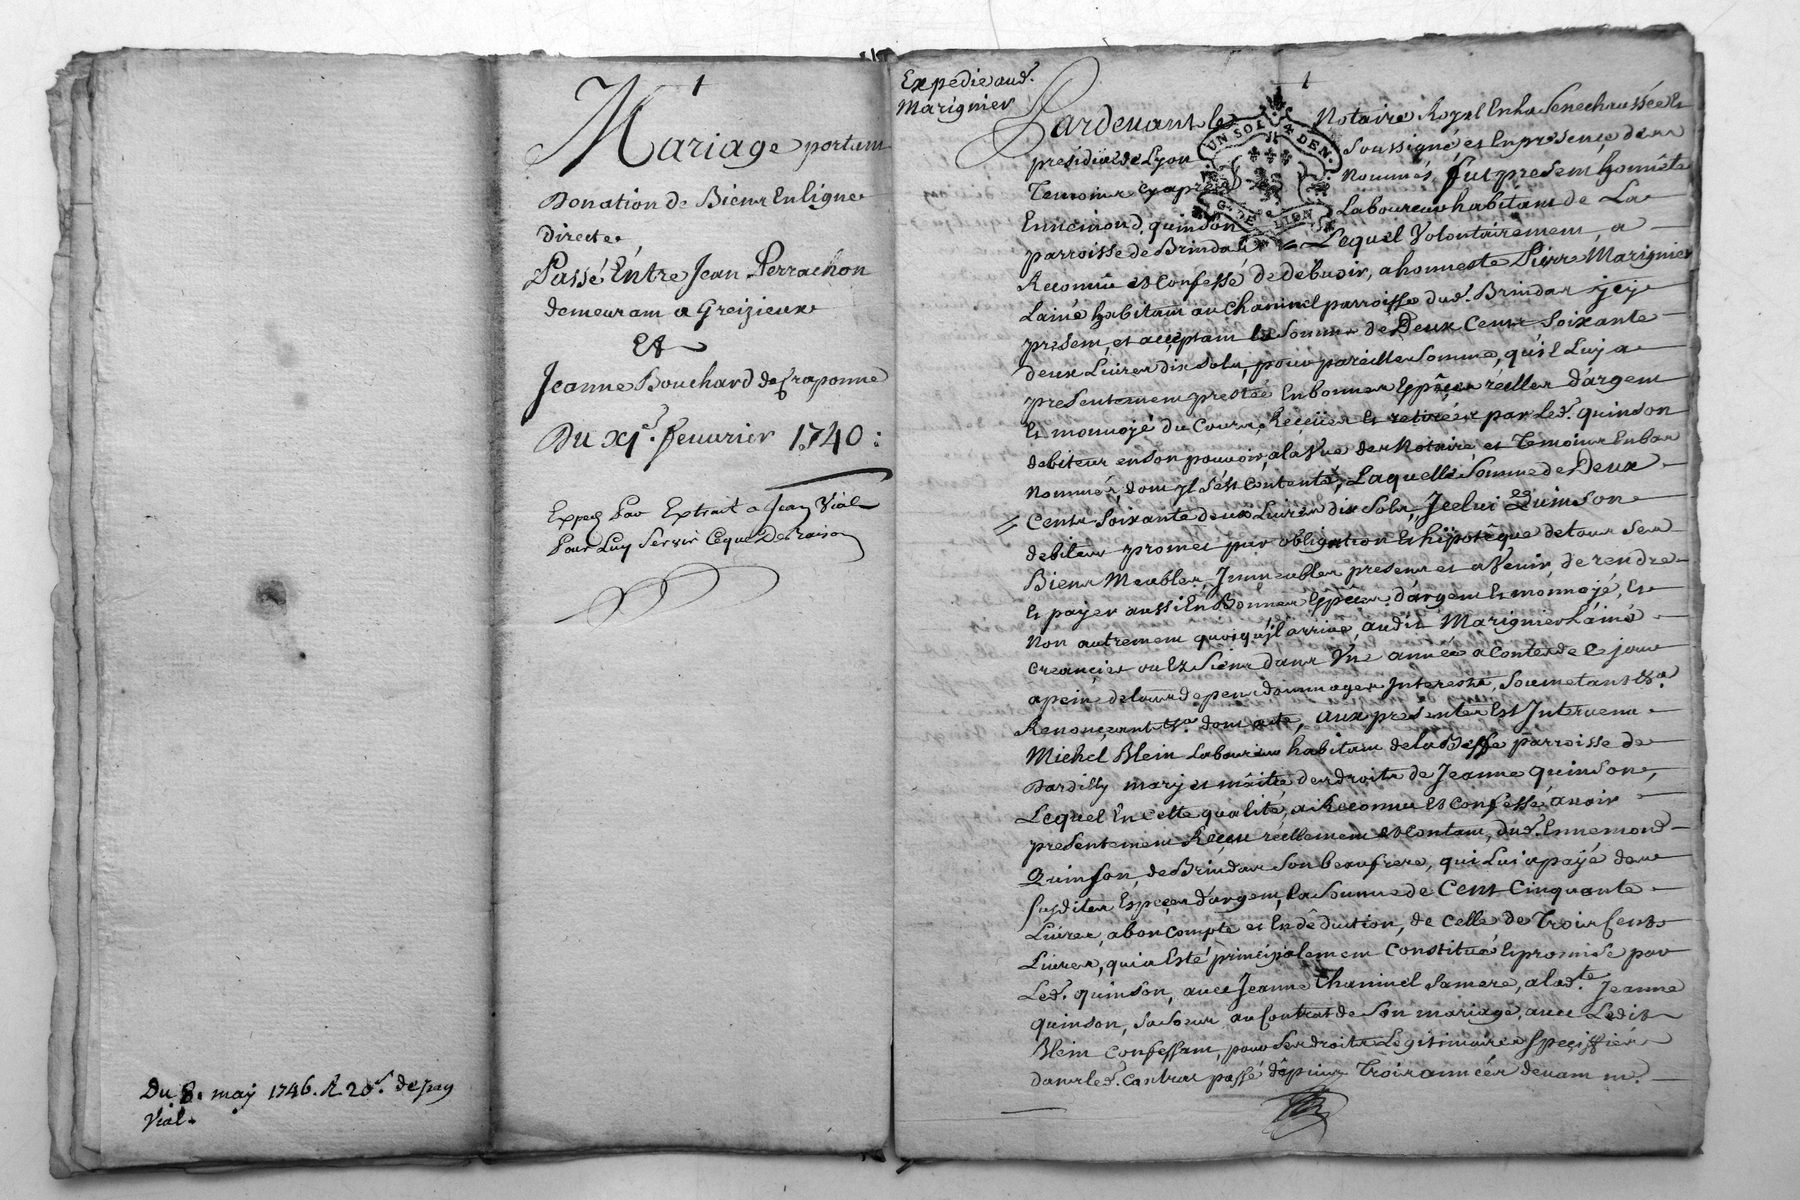 Mariage portant
Donation de Biens En ligne
Directe
Passé Entre Jean Perrachon
demeurant a Greizieux
Et
Jeanne Bouchard de Craponne
Du xj.e feuurier 1740:
Exped. Par Extrait a Jean Vial
Pour Luy Servir Ceque De Raison
Du 8. may 1746. R. 20s. de Jean
Vial.
Expedie aud.
Marignier
Pardeuant le Notaire Royal En la Senechaussée Et
presidial de Lyon Soussigné et En presence des
Temoins cy apres Nommés, fut present honnête
Ennemond quinson Laboureur habitant de La
parroisse de Brindas Lequel Volontairement, a
Reconnu et Confessé de debuoir, a honneste Pierre Marignier
Lainé habitant au Chaninel parroisse dud. Brindas jcy
present, et acceptant la Somme de Deux Cents Soixante
deux Liures dix Sols, pour pareille Somme, qu'il Luy a
presentement prestée En bonnes Espêces reelles d'argent
Et monnoyé du Cours, Reçües Et retirées par Led. quinson
debiteur en son pouvoir, a la Vüe des Notaire et Temoins En bas
Nommés, dont jl s'est Contenté, Laquelle Somme de Deux
Cents Soixante deux Liures dix Sols, Jcelui Quinson
debiteur promet par obligation Et hipotêque de tous Ses
Biens Meubles, Jmmeubles presents et a Venir, de rendre
Et payer aussi En Bonnes Espêces d'argent Et monnoyé, Et
Non autrement quoiqu'jl arrive, audit Marignier Lainé
creancier ou Es Siens dans Vne année a Conter de Ce jour
a peine de tous depens dommages Interests, Soumetant &a.
Renonçant &a. dont acte, aux presentes Est Interuenu
Michel Blein Laboureur habitant de la Beffe parroisse de
Dardilly mary et maitre des droits de Jeanne quinson,
Lequel En cette qualité, a Reconnu Et Confessé auoir
presentement Reçeu réellement et Contant, dud. Ennemond
Quinson, de Brindas Son beaufrere, qui Lui a payé des
susdites Espêces d'argent, La Somme de Cent Cinquante
Liures, a bon compte et En déduction, de celle de Trois Cents
Liures, qui a Esté principalement Constitué Et promise par
Led. quinson, auec Jeanne Chaninel Sa mere, a lad.te Jeanne
quinson, Sa Soeur au Contrat de Son mariage, auec Ledit
Blein Confessant, pour Ses droits Légitimaires Specifiés
dans led. Contrat passé dêpuis Trois années deuant m.e
UN SOL 4 DEN.
G. DE LION